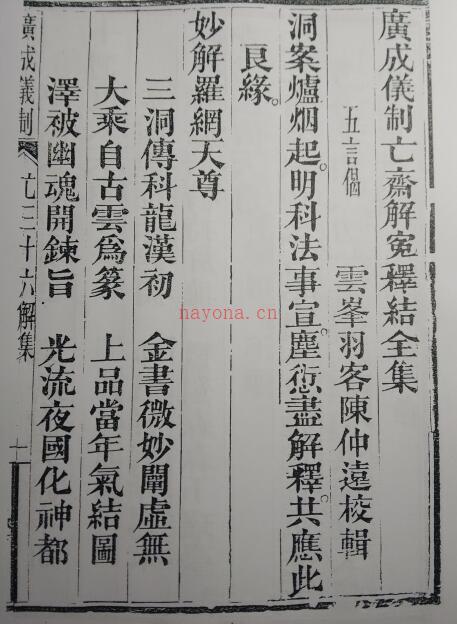 廣成儀制亡齋解冤釋結全集
雲峯羽客陳仲遠校輯
五言偈
洞案爐烟起。明科法事宣。塵愆盡解釋。共應此
良緣。
妙解羅網天尊
三洞傳科龍漢初　金書微妙闡虛無
大乘自古雲為篆　上品當年氣結圖
澤被幽魂開鍊旨　光流夜國化神都
廣成儀制　亡三十六解集　一
nayona.cn